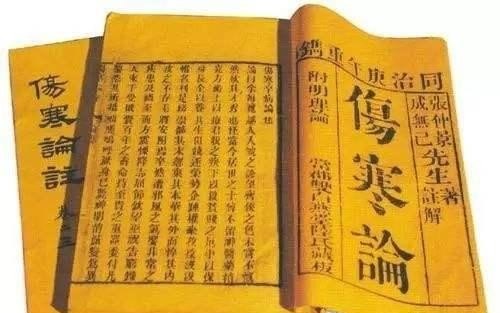 同治庚午年重鐫
張仲景 成無己 先生 著 註解
傷寒論
附明理論
常郡雙白燕堂陸氏藏板
傷寒卒病論集
論曰余每覽越人入虢之診望齊侯之色未嘗不慨
然歎其才秀也怪當今居世之士曾不留神醫藥精
究方術上以療君親之疾下以救貧賤之厄中以保
身長全以養其生但競逐榮勢企踵權豪孜孜汲汲
惟名利是務崇飾其末忽棄其本華其外而悴其内
皮之不存毛將安附焉卒然遭邪風之氣嬰非常之
疾患及禍至而方震慄降志屈節欽望巫祝告窮歸
天束手受敗賫百年之壽命持至貴之重器委付凡
醫恣其所措咄嗟嗚呼厥身已斃神明消滅變為異
傷寒論註 卷之三